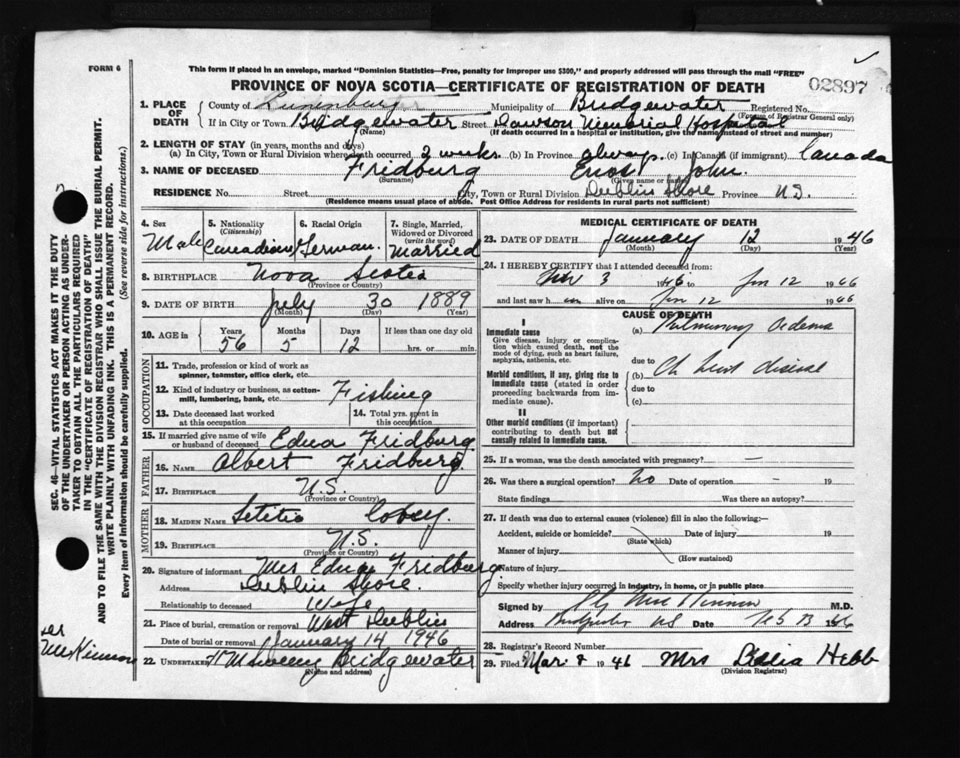 FORM 6
This form if placed in an envelope, marked "Dominion Statistics—Free, penalty for improper use $300," and properly addressed will pass through the mail "FREE"
PROVINCE OF NOVA SCOTIA—CERTIFICATE OF REGISTRATION OF DEATH
02897
1. PLACE OF DEATH
County of Lunenburg Municipality of Bridgewater Registered No.
(For use of Registrar General only)
If in City or Town Bridgewater Street Dawson Memorial Hospital
(Name) (If death occurred in a hospital or institution, give the name instead of street and number)
2. LENGTH OF STAY (in years, months and days)
(a) In City, Town or Rural Division where death occurred 2 weeks (b) In Province always. (c) In Canada (if immigrant) Canada
3. NAME OF DECEASED Fridburg Enos John.
(Surname) (Given name or names)
RESIDENCE No. Street City, Town or Rural Division Dublin Shore Province N.S.
(Residence means usual place of abode. Post Office Address for residents in rural parts not sufficient)
4. Sex Male
5. Nationality (Citizenship) Canadian
6. Racial Origin German.
7. Single, Married, Widowed or Divorced (write the word) Married
8. BIRTHPLACE Nova Scotia
(Province or Country)
9. DATE OF BIRTH July 30 1889
(Month) (Day) (Year)
10. AGE in Years 56 Months 5 Days 12 If less than one day old hrs. or min.
OCCUPATION
11. Trade, profession or kind of work as spinner, teamster, office clerk, etc.
12. Kind of industry or business, as cotton-mill, lumbering, bank, etc. Fishing
13. Date deceased last worked at this occupation
14. Total yrs. spent in this occupation
15. If married give name of wife or husband of deceased Edna Fridburg
FATHER
16. NAME Albert Fridburg.
17. BIRTHPLACE N.S.
(Province or Country)
MOTHER
18. MAIDEN NAME Letitia
19. BIRTHPLACE N.S.
(Province or Country)
20. Signature of informant Mrs Edna Fridburg
Address Dublin Shore
Relationship to deceased Wife
21. Place of burial, cremation or removal West Dublin
Date of burial or removal January 14 1946
22. UNDERTAKER Bridgewater
(Name and address)
MEDICAL CERTIFICATE OF DEATH
23. DATE OF DEATH January 12 1946
(Month) (Day) (Year)
24. I HEREBY CERTIFY that I attended deceased from:
3 to Jan 12 1946
and last saw h alive on Jan 12 1946
CAUSE OF DEATH
I
Immediate cause
Give disease, injury or complication which caused death, not the mode of dying, such as heart failure, asphyxia, asthenia, etc.
(a) Pulmonary Oedema
due to
Morbid conditions, if any, giving rise to immediate cause (stated in order proceeding backwards from immediate cause).
(b) Ch heart disease
due to
(c)
II
Other morbid conditions (if important) contributing to death but not causally related to immediate cause.
25. If a woman, was the death associated with pregnancy? —
26. Was there a surgical operation? No Date of operation — 19
State findings Was there an autopsy?
27. If death was due to external causes (violence) fill in also the following:—
Accident, suicide or homicide? Date of injury 19
(State which)
Manner of injury
(How sustained)
Nature of injury
Specify whether injury occurred in industry, in home, or in public place
Signed by M.D.
Address Bridgewater NS Feb 13 46
28. Registrar's Record Number
29. Filed Mar. 8 1946 Mrs Delia Hebb
(Division Registrar)
SEC. 46—VITAL STATISTICS ACT MAKES IT THE DUTY
OF THE UNDERTAKER OR PERSON ACTING AS UNDER-
TAKER TO OBTAIN ALL THE PARTICULARS REQUIRED
IN THE "CERTIFICATE OF REGISTRATION OF DEATH"
AND TO FILE THE SAME WITH THE DIVISION REGISTRAR WHO SHALL ISSUE THE BURIAL PERMIT.
WRITE PLAINLY WITH UNFADING INK. THIS IS A PERMANENT RECORD.
Every item of information should be carefully supplied. (See reverse side for instructions.)
Dr
MacKinnon